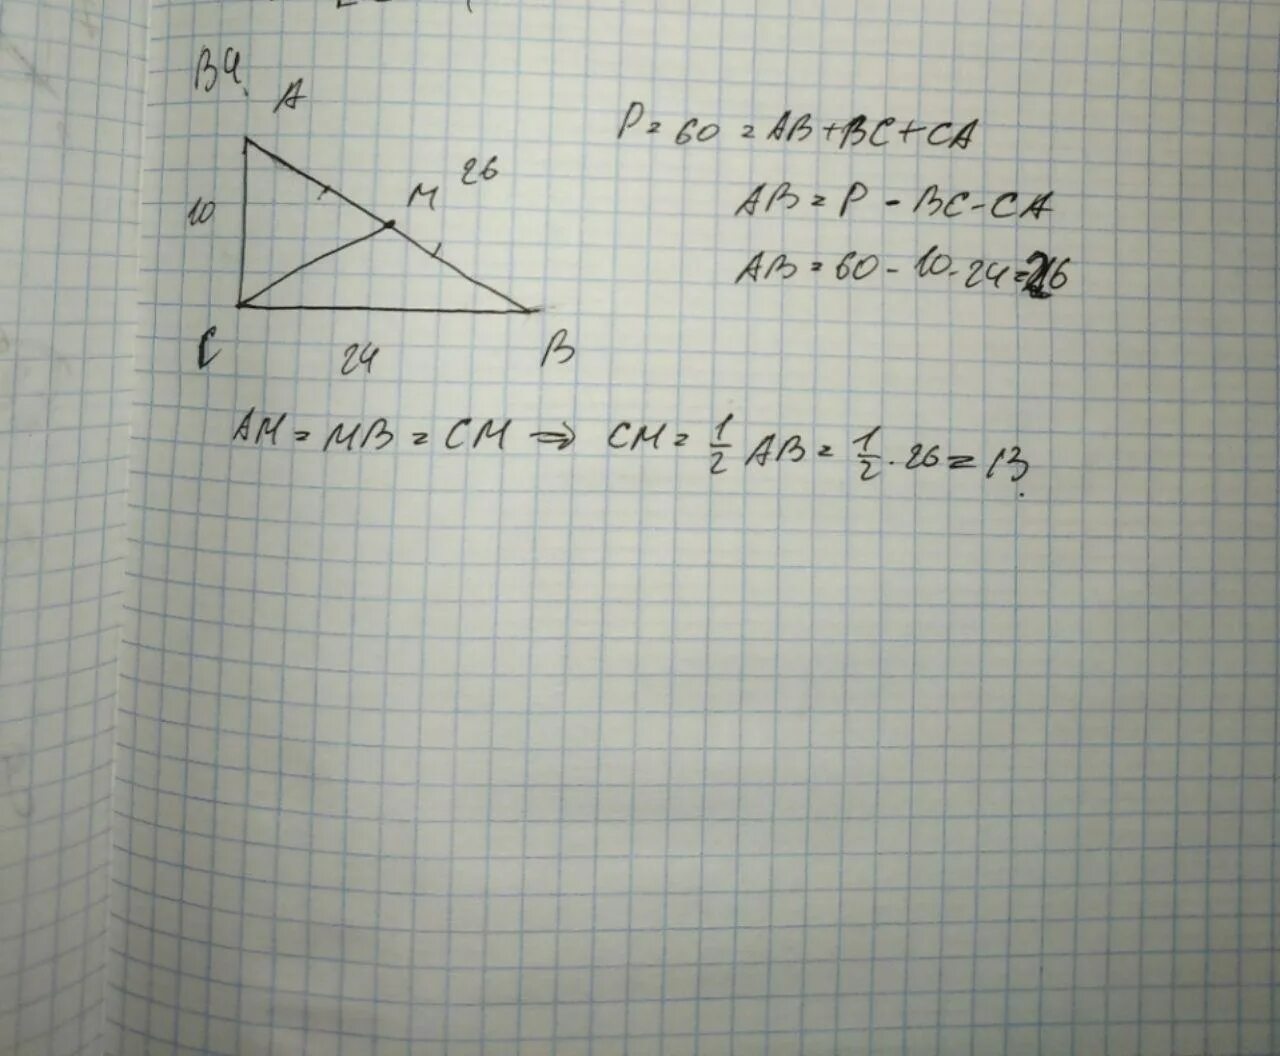 B4.
A
P = 60 = AB + BC + CA
26
M
10
AB = P - BC - CA
AB = 60 - 10 - 24 = 26
C
24
B
AM = MB = CM ⇒ CM = 1/2 AB = 1/2 · 26 = 13.